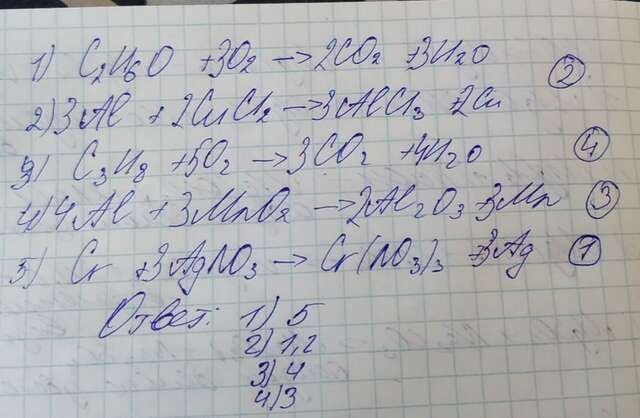 1) C₂H₆O +3O₂ → 2CO₂ +3H₂O
2) 3Al + 2CuCl₂ → 3AlCl₃ +2Cu ②
3) C₃H₈ +5O₂ → 3CO₂ +4H₂O ④
4) 4Al + 3MnO₂ → 2Al₂O₃ +3Mn ③
5) Cr +3AgNO₃ → Cr(NO₃)₃ +3Ag ①
Ответ: 1) 5
2) 1,2
3) 4
4) 3